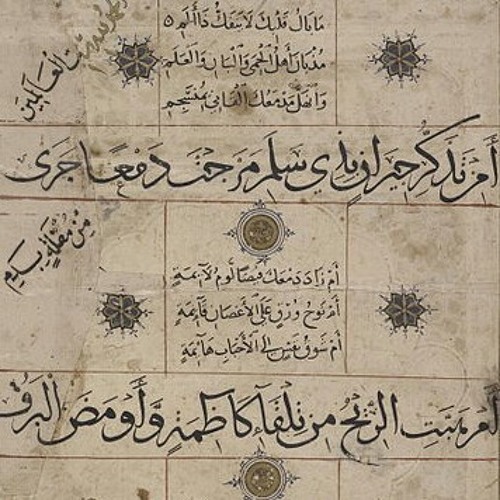 العالمين
ما بال قلبك لا ينفك ذا ألم
مذ بان أهل الحمى والبان والعلم
وانهل مدمعك القاني بمنسجم
أمن تذكر جيران بذي سلم مزجت دمعا جرى
من مقلة بدم
أم زاد دمعك فيضا لوم لائمة
أم نوح ورق على الأغصان قائمة
أم شوق نفس إلى الأحباب هائمة
أم هبت الريح من تلقاء كاظمة وأومض البرق